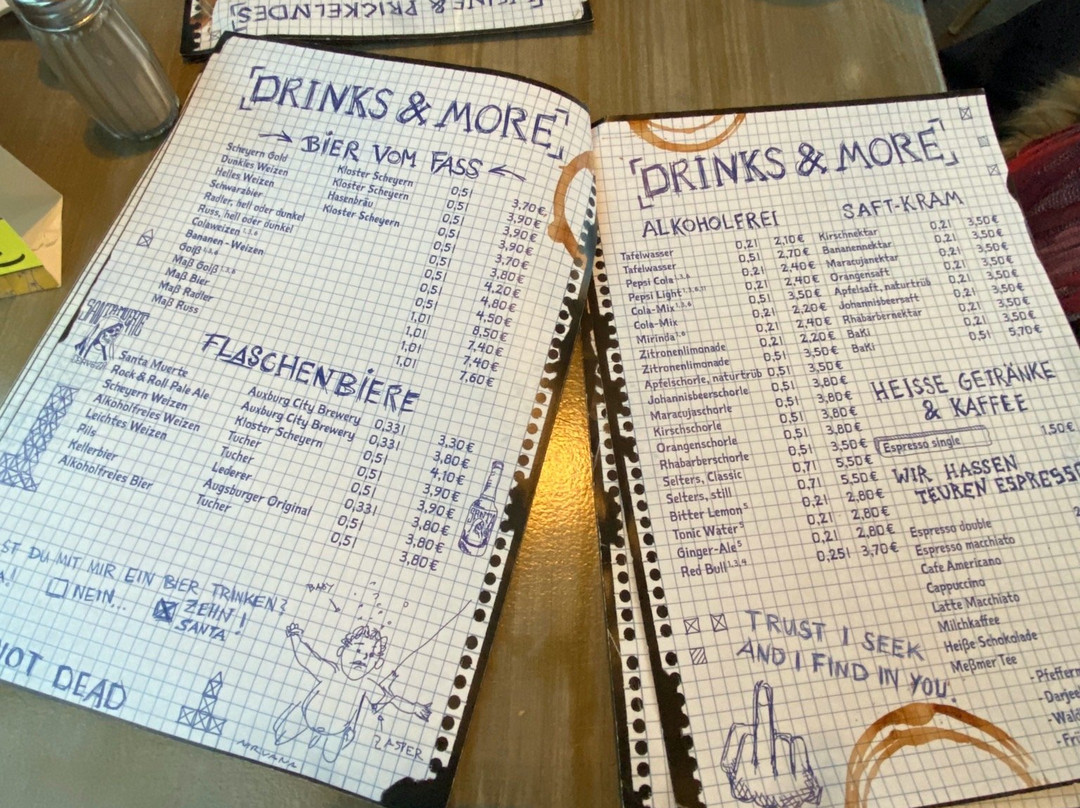 FEINE & PRICKELNDES
[DRINKS & MORE]
→ BIER VOM FASS ←
Scheyern Gold Kloster Scheyern 0,5l 3,70€
Dunkles Weizen Kloster Scheyern 0,5l 3,90€
Helles Weizen Hasenbräu 0,5l 3,90€
Schwarzbier Kloster Scheyern 0,5l 3,90€
Radler, hell oder dunkel 0,5l 3,70€
Russ, hell oder dunkel 0,5l 3,80€
Colaweizen 1,3,6 0,5l 4,20€
Bananen-Weizen 0,5l 4,80€
Goiß 1,3,6 0,5l 4,50€
Maß Goiß 1,3,6 1,0l 8,50€
Maß Bier 1,0l 7,40€
Maß Radler 1,0l 7,40€
Maß Russ 1,0l 7,60€
FLASCHENBIERE
Santa Muerte Auxburg City Brewery 0,33l 3,30€
Rock & Roll Pale Ale Auxburg City Brewery 0,33l 3,80€
Scheyern Weizen Kloster Scheyern 0,5l 4,10€
Alkoholfreies Weizen Tucher 0,5l 3,90€
Leichtes Weizen Tucher 0,5l 3,90€
Pils Lederer 0,33l 3,80€
Kellerbier Augsburger Original 0,5l 3,80€
Alkoholfreies Bier Tucher 0,5l 3,80€
ST DU MIT MIR EIN BIER TRINKEN?
A! ☐ NEIN... ☒ ZEHN!
SANTA
NOT DEAD
BABY
NIRVANA
ZASTER
[DRINKS & MORE]
ALKOHOLFREI
Tafelwasser 0,2l 2,10€
Tafelwasser 0,5l 2,70€
Pepsi Cola 1,3,6 0,2l 2,40€
Pepsi Light 0,2l 2,40€
Cola-Mix 1,3,6 0,5l 3,50€
Cola-Mix 0,2l 2,20€
Mirinda 0,2l 2,40€
Zitronenlimonade 0,2l 2,20€
Zitronenlimonade 0,5l 3,50€
Apfelschorle, naturtrüb 0,5l 3,80€
Johannisbeerschorle 0,5l 3,80€
Maracujaschorle 0,5l 3,80€
Kirschschorle 0,5l
Orangenschorle 0,5l
Rhabarberschorle 0,5l
Selters, Classic 0,7l 5,50€
Selters, still 0,7l 5,50€
Bitter Lemon 5 0,2l 2,80€
Tonic Water 5 0,2l 2,80€
Ginger-Ale 5 0,2l 2,80€
Red Bull 1,3,9 0,25l 3,70€
SAFT-KRAM
Kirschnektar 0,2l 3,50€
Bananennektar 0,2l 3,50€
Maracujanektar 0,2l 3,50€
Orangensaft 0,2l 3,50€
Apfelsaft, naturtrüb 0,2l 3,50€
Johannisbeersaft 0,2l 3,50€
Rhabarbernektar 0,2l 3,50€
BaKi 0,2l 3,50€
BaKi 0,5l 5,70€
HEISSE GETRÄNKE
& KAFFEE
Espresso single 1,50€
WIR HASSEN
TEUREN ESPRESSO
Espresso double
Espresso macchiato
Cafe Americano
Cappuccino
Latte Macchiato
Milchkaffee
Heiße Schokolade
Meßmer Tee
TRUST I SEEK
AND I FIND IN YOU.